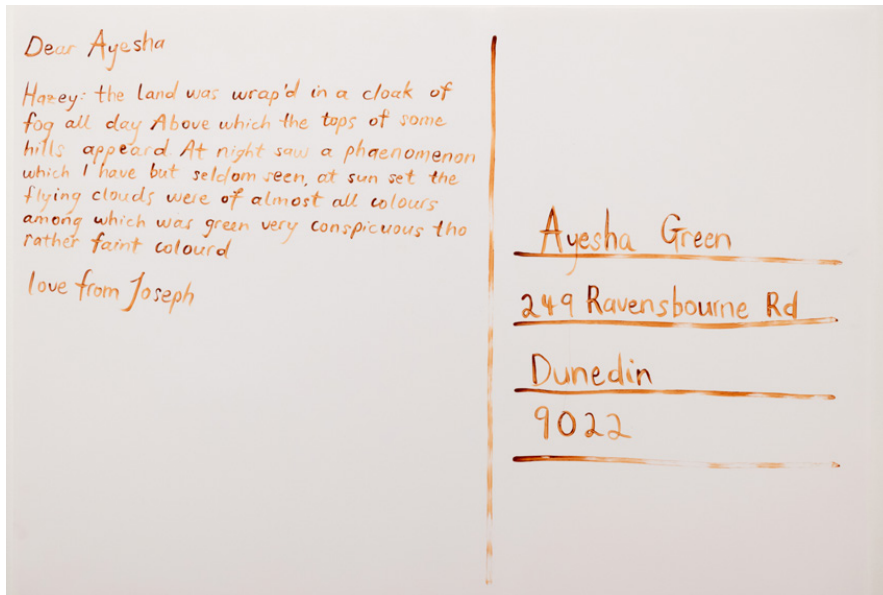 Dear Ayesha
Hazey: the land was wrap'd in a cloak of
fog all day Above which the tops of some
hills appeard. At night saw a phaenomenon
which I have but seldom seen, at sun set the
flying clouds were of almost all colours
among which was green very conspicuous tho
rather faint colourd
love from Joseph
Ayesha Green
249 Ravensbourne Rd
Dunedin
9022